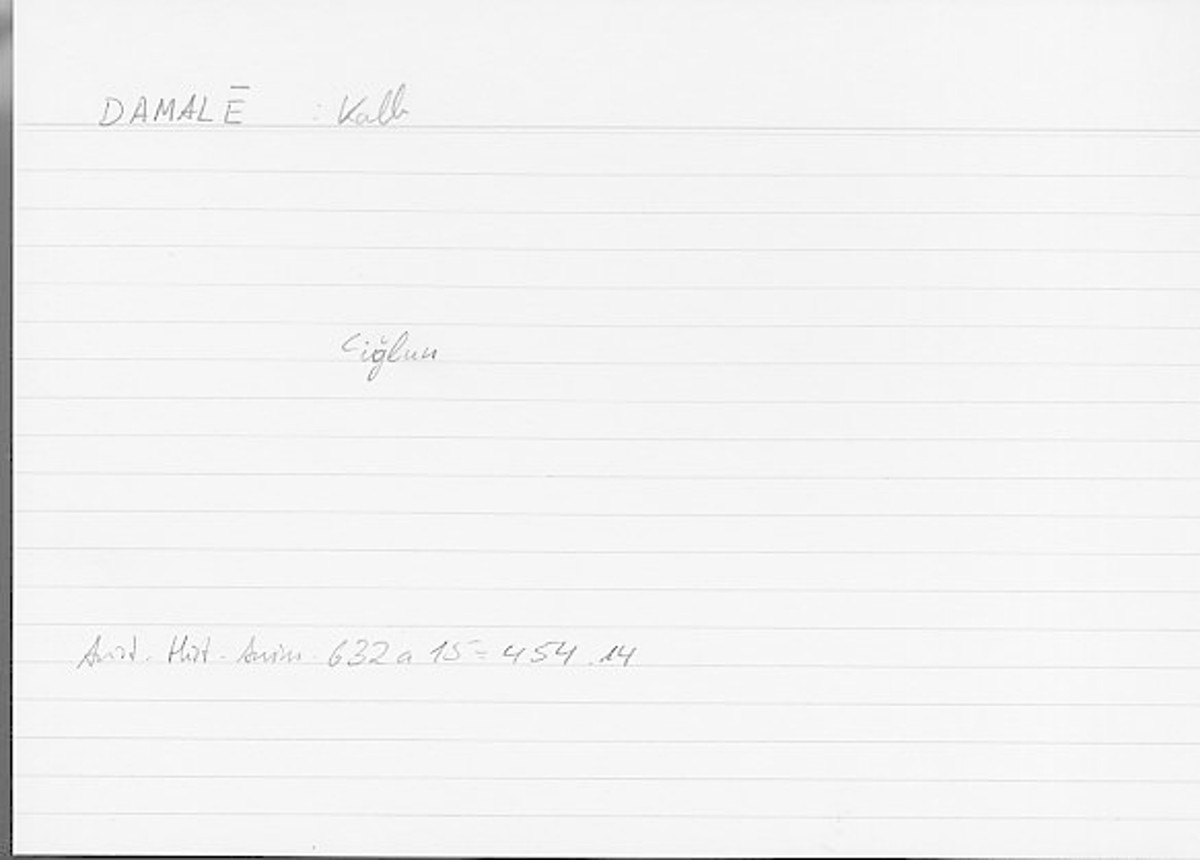 DAMALĒ : Kalb
ʿiǧlun
Arist. Hist. Anim. 632 a 15 = 454.14